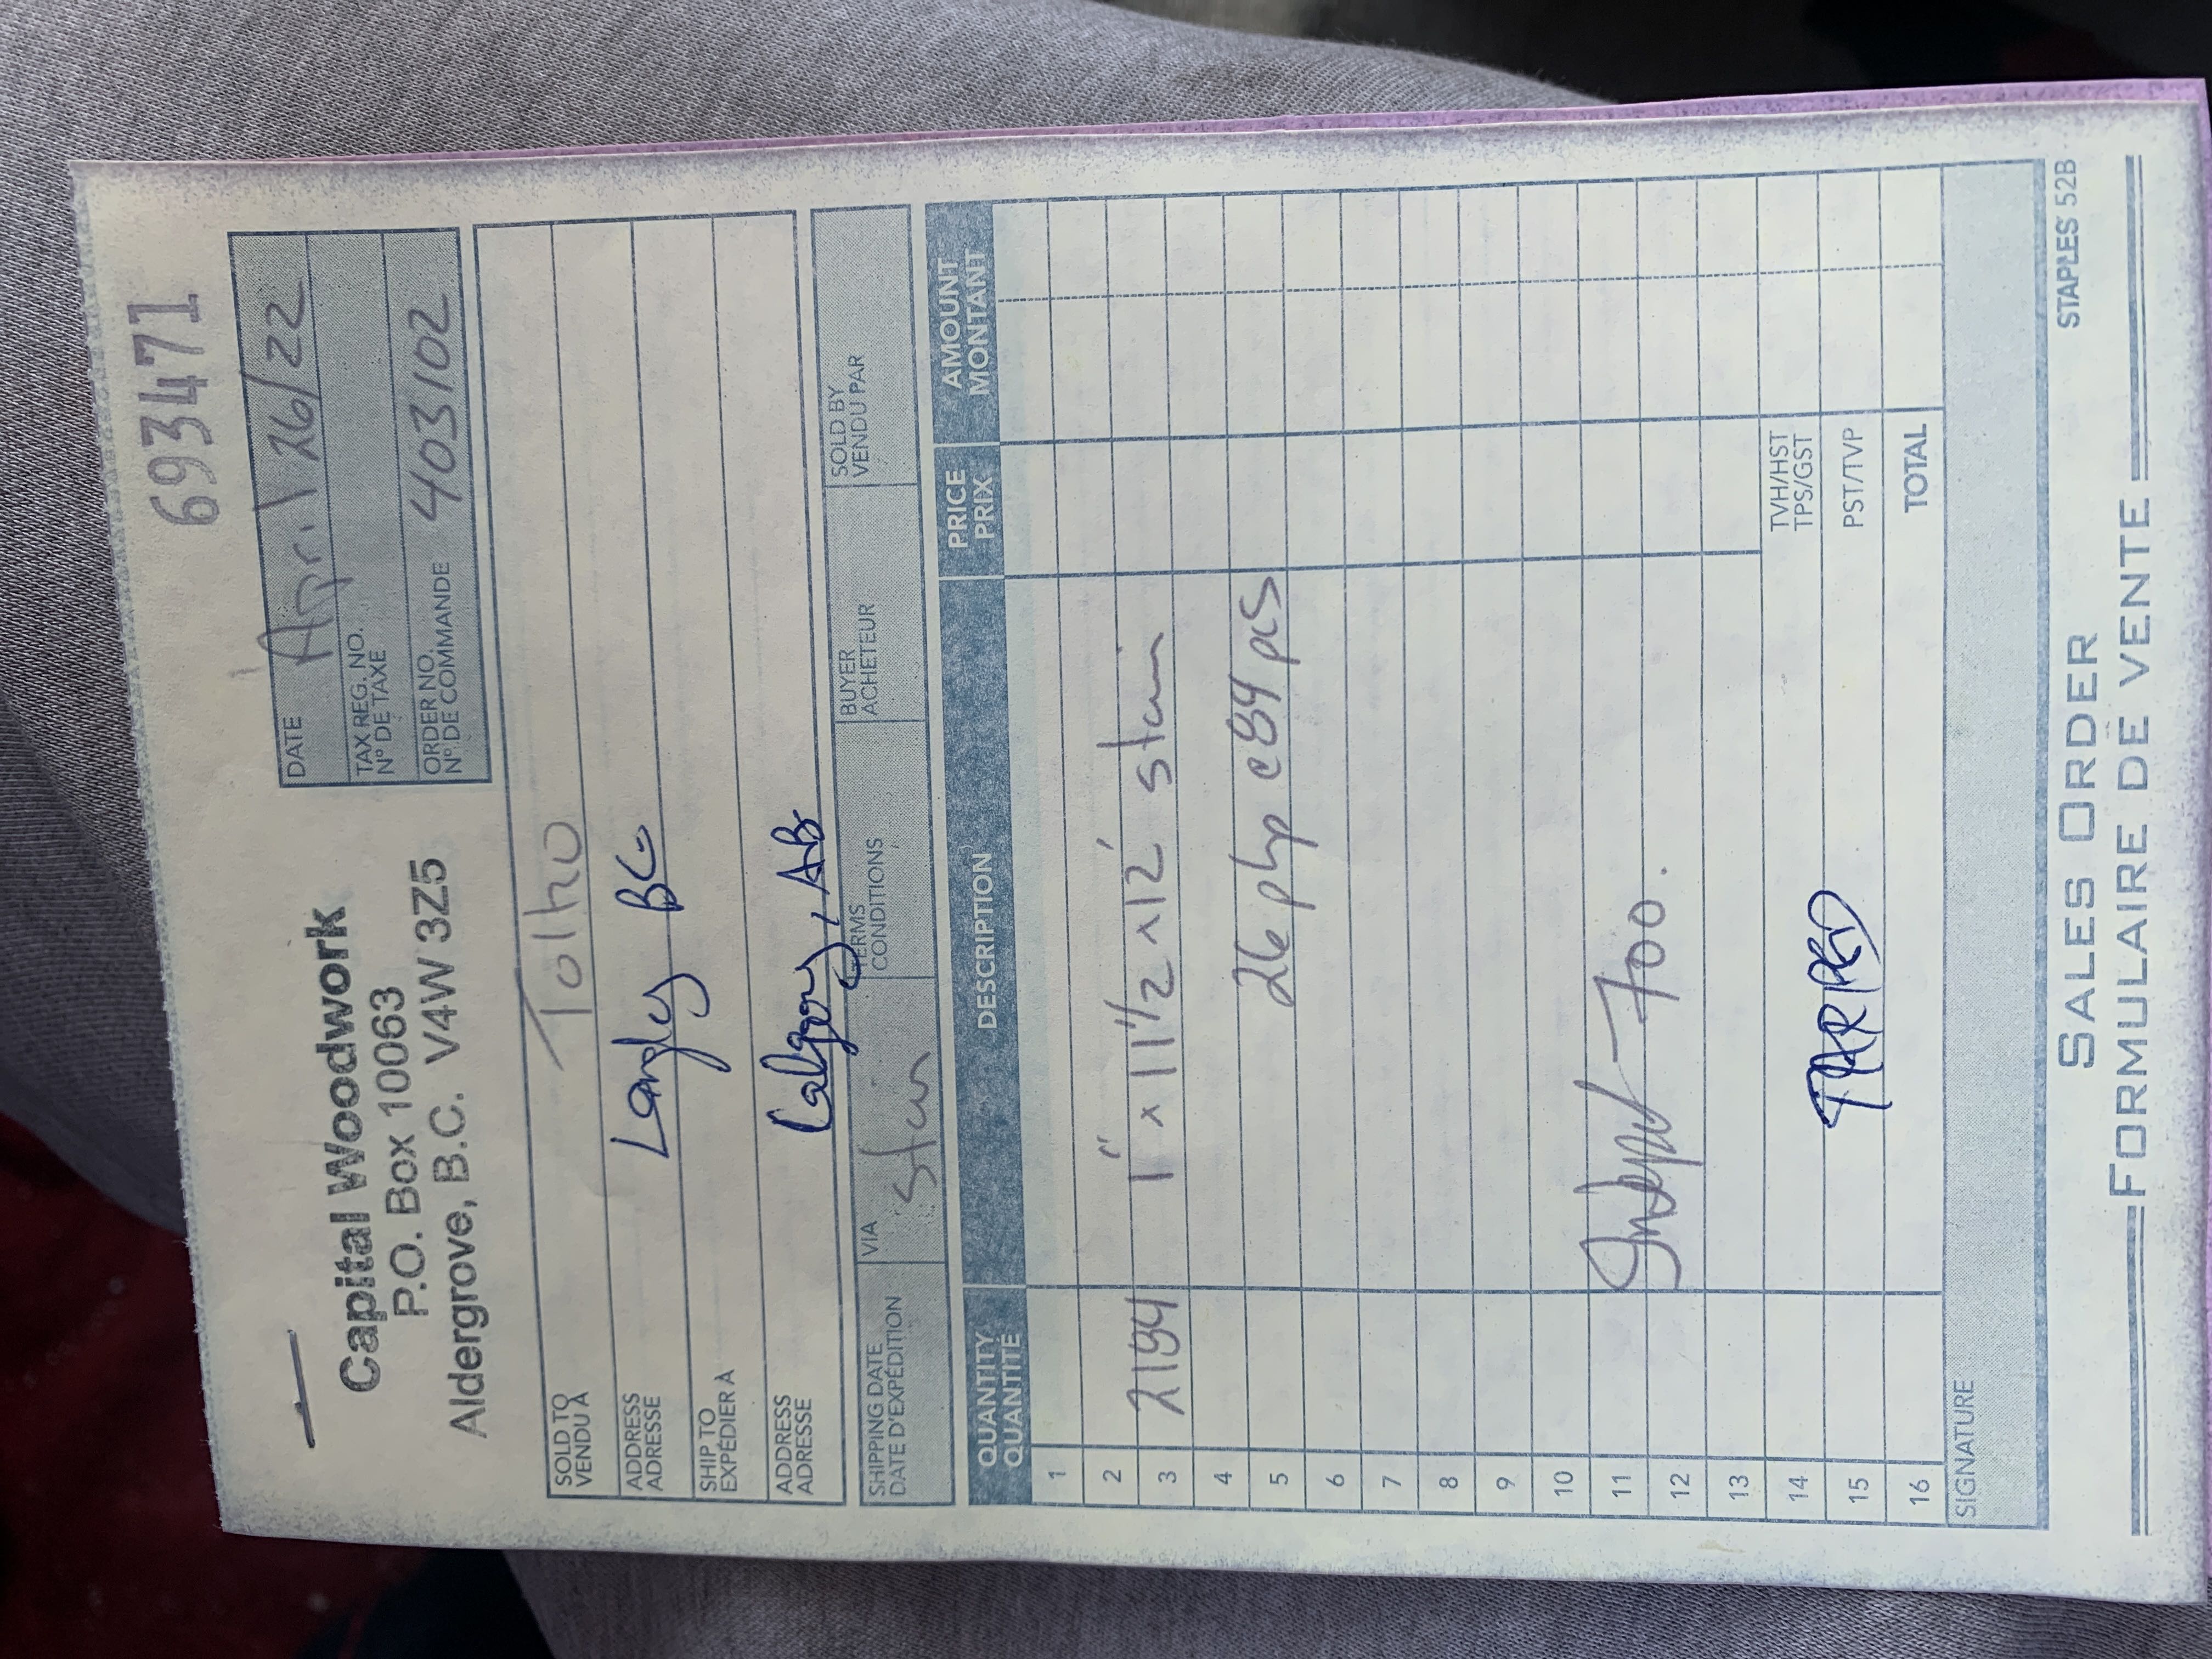 693471
Capital Woodwork
P.O. Box 10063
Aldergrove, B.C. V4W 3Z5
DATE April 26/22
TAX REG. NO.
Nº DE TAXE
ORDER NO.
Nº DE COMMANDE 403102
SOLD TO
VENDU À Tolko
ADDRESS
ADRESSE Langley BC
SHIP TO
EXPÉDIER À
ADDRESS
ADRESSE Calgary, AB
SHIPPING DATE
DATE D'EXPÉDITION
VIA
stair
TERMS
CONDITIONS
BUYER
ACHETEUR
SOLD BY
VENDU PAR
QUANTITY
QUANTITÉ
DESCRIPTION
PRICE
PRIX
AMOUNT
MONTANT
1
2
3 2184 1" x 11 1/2 x 12' stair
4
5 26 @ 84 pcs
6
7
8
9
10
11 700.
12
13
14 TVH/HST
TPS/GST
15 TARPED PST/TVP
16 TOTAL
SIGNATURE
SALES ORDER
STAPLES 52B
FORMULAIRE DE VENTE